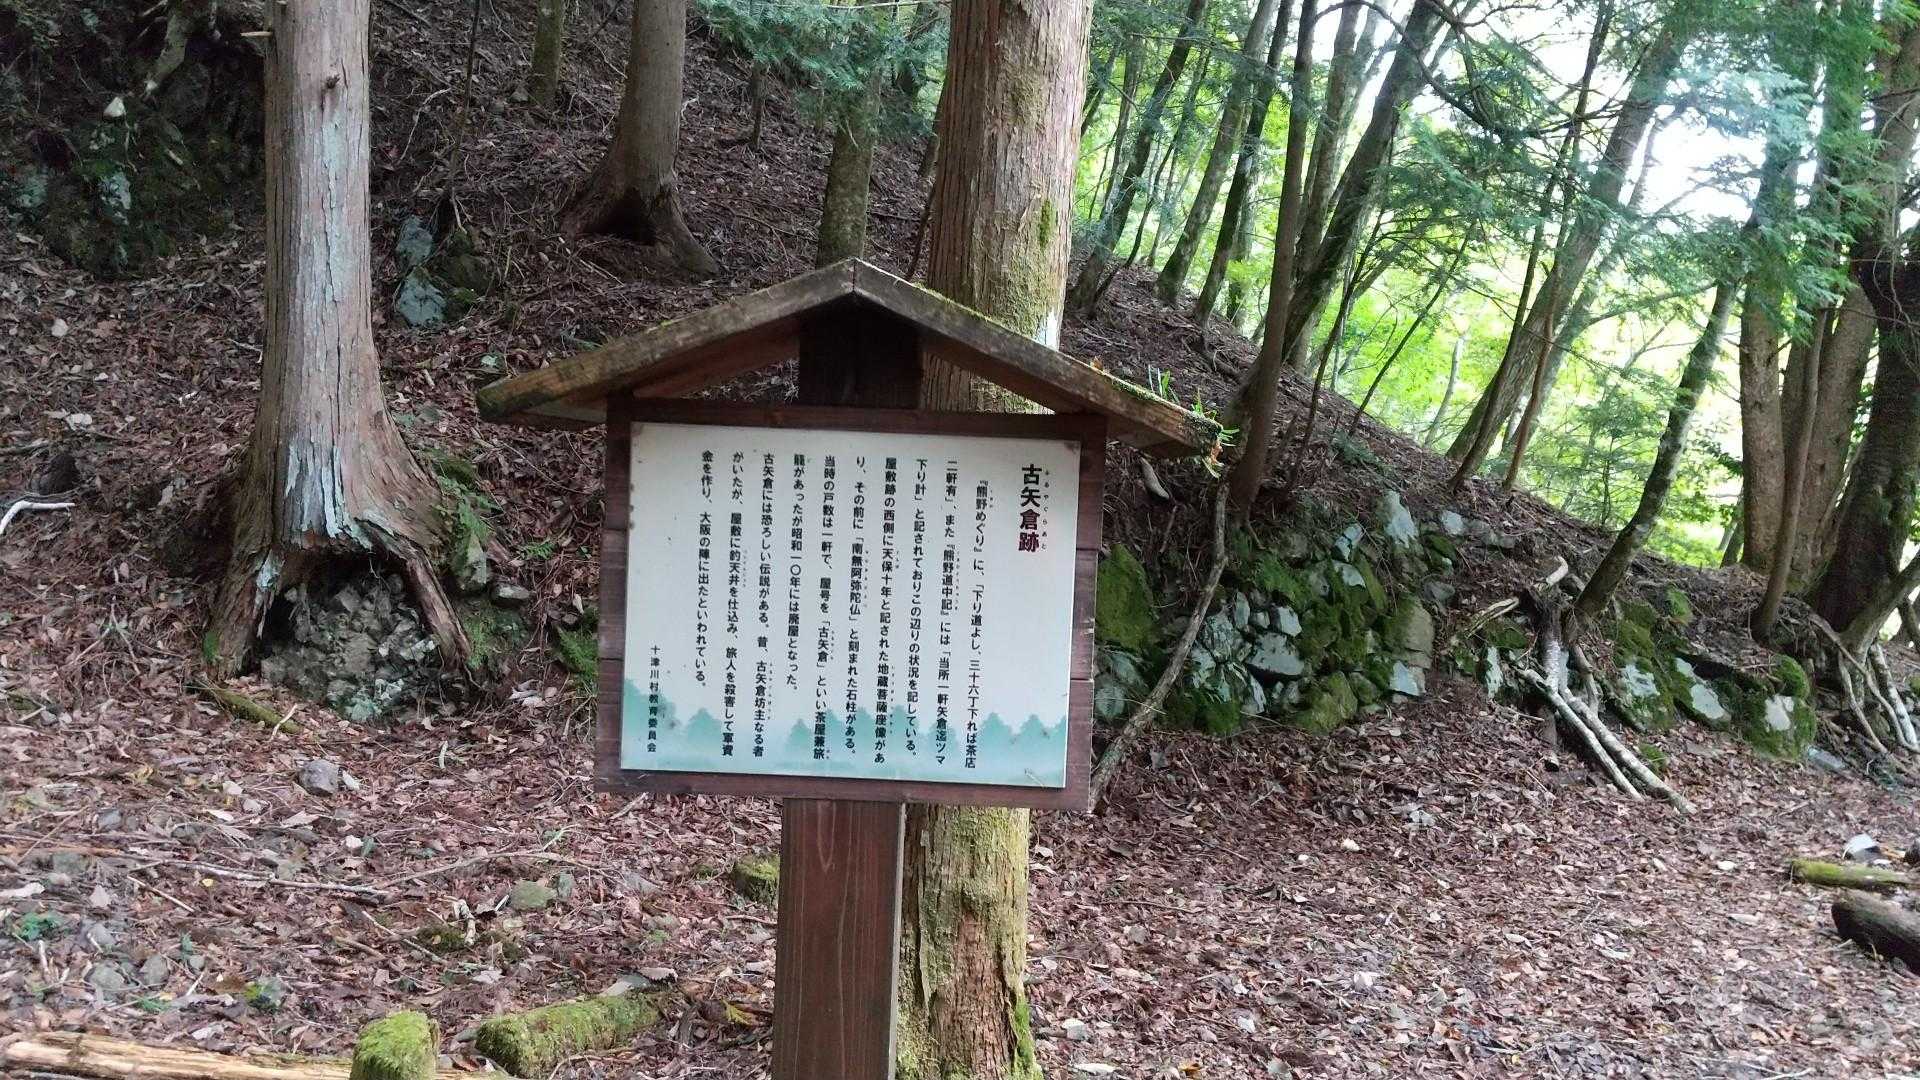 古矢倉跡
ふるやぐらあと
『熊野めぐり』に、「下り道よし、三十六丁下れば茶店
二軒有」、また『熊野道中記』には「当所一軒矢倉迄ツマ
下り計」と記されておりこの辺りの状況を記している。
屋敷跡の西側に天保十年と記された地蔵菩薩座像があ
り、その前に「南無阿弥陀仏」と刻まれた石柱がある。
当時の戸数は一軒で、屋号を「古矢倉」といい茶屋兼旅
籠があったが昭和一〇年には廃屋となった。
古矢倉には恐ろしい伝説がある。昔、古矢倉坊主なる者
がいたが、屋敷に釣天井を仕込み、旅人を殺害して軍資
金を作り、大阪の陣に出たといわれている。
十津川村教育委員会